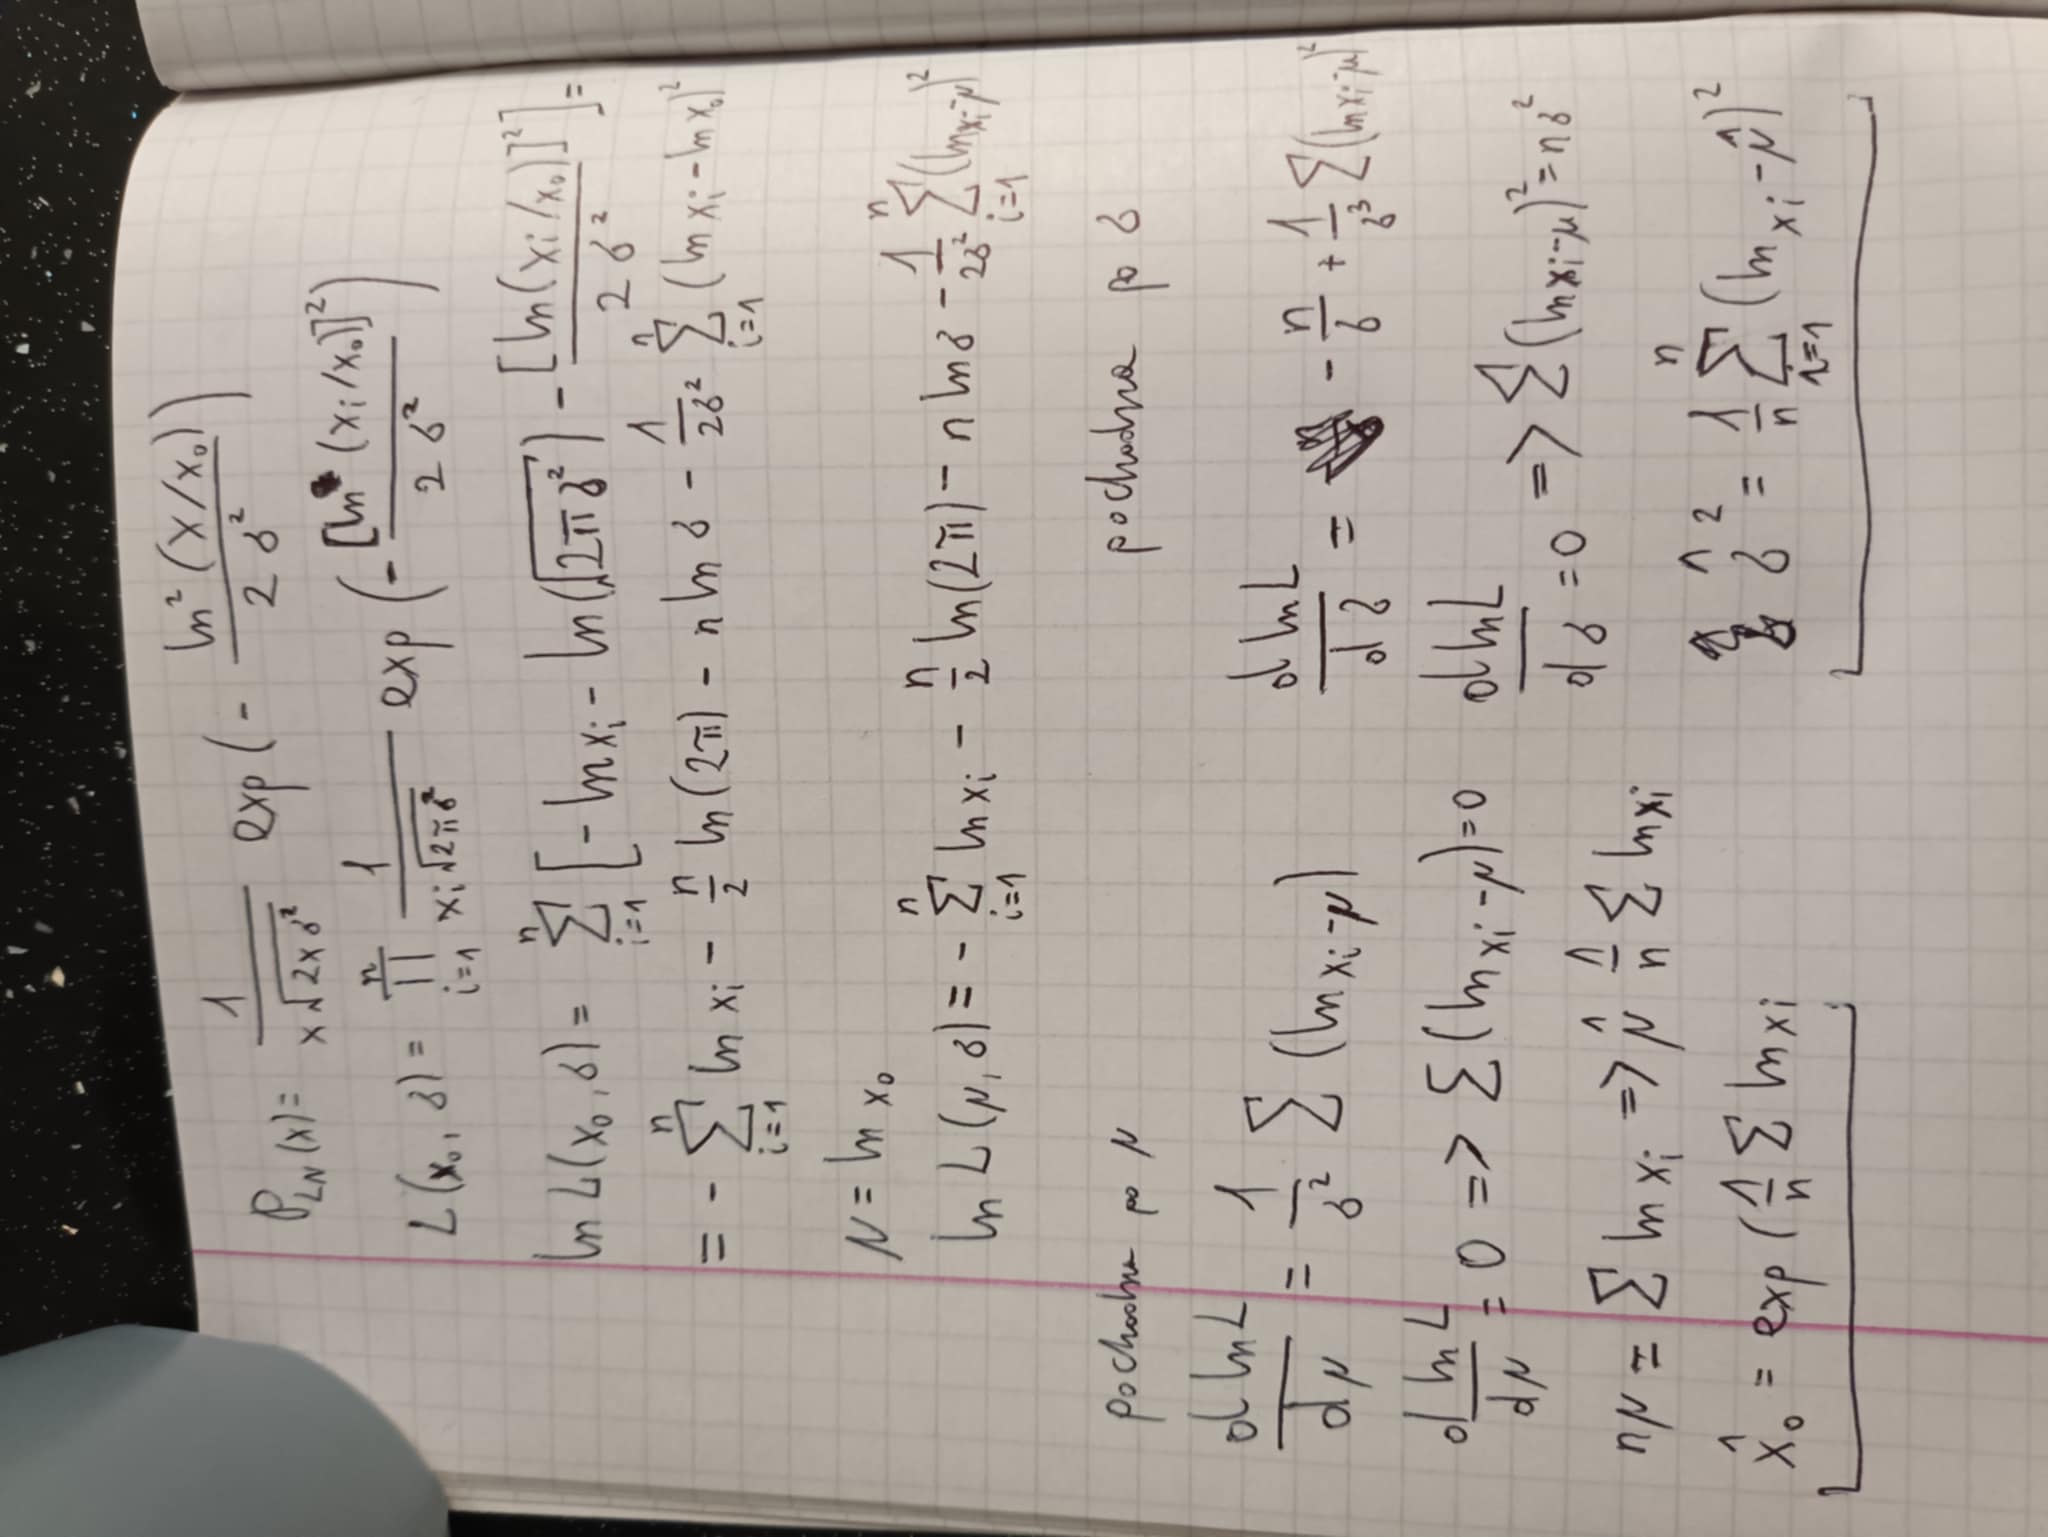 P_LN(x) = 1 / (x√(2xσ²)) exp(- ln²(x/x₀) / (2σ²))
L(x₀, σ) = ∏_{i=1}^{n} 1 / (xᵢ√(2πσ²)) exp(- [ln(xᵢ/x₀)]² / (2σ²))
ln L(x₀, σ) = ∑_{i=1}^{n} [- ln xᵢ - ln(√(2πσ²)) - [ln(xᵢ/x₀)]² / (2σ²)] =
= - ∑_{i=1}^{n} ln xᵢ - n/2 ln(2π) - n ln σ - 1/(2σ²) ∑_{i=1}^{n} (ln xᵢ - ln x₀)²
μ = ln x₀
ln L(μ, σ) = - ∑_{i=1}^{n} ln xᵢ - n/2 ln(2π) - n ln σ - 1/(2σ²) ∑_{i=1}^{n} (ln xᵢ - μ)²
pochodna po μ
d ln L / dμ = 1/σ² ∑ (ln xᵢ - μ)
d ln L / dμ = 0 => ∑(ln xᵢ - μ) = 0
nμ = ∑ ln xᵢ => μ̂ 1/n ∑ ln xᵢ
x̂₀ = exp (1/n ∑ ln xᵢ
pochodna po σ
d ln L / dσ = - n/σ + 1/σ³ ∑(ln xᵢ - μ)²
d ln L / dσ = 0 => ∑(ln xᵢ - μ)² = nσ²
σ̂² = 1/n ∑_{i=1}^{n} (ln xᵢ - μ̂)²